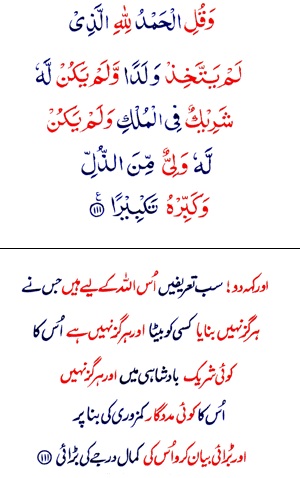 وَقُلِ الْحَمْدُ لِلّٰهِ الَّذِىْ
لَمْ يَتَّخِذْ وَلَدًا وَّلَمْ يَكُنْ لَّهٗ
شَرِيْكٌ فِى الْمُلْكِ وَلَمْ يَكُنْ
لَّهٗ وَلِىٌّ مِّنَ الذُّلِّ
وَكَبِّرْهُ تَكْبِيْرًا ﴿۱۱۱﴾ ع
اور کہہ دو! سب تعریفیں اُس اللہ کے لیے ہیں جس نے
ہرگز نہیں بنایا کسی کو بیٹا اور ہرگز نہیں ہے اُس کا
کوئی شریک بادشاہی میں اور ہرگز نہیں
اُس کا کوئی مددگار کمزوری کی بنا پر
اور بڑائی بیان کرو اُس کی کمال درجے کی بڑائی ﴿۱۱۱﴾